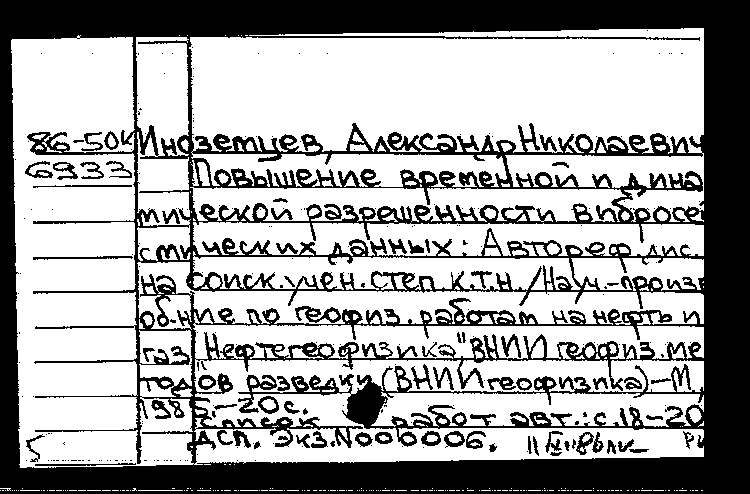 86-50К Иноземцев, Александр Николаевич
6933 Повышение временной и дина
мической разрешенности вибросей
смических данных: Автореф.дис.
на соиск.учен.степ.к.т.н./Науч.-произв
об-ние по геофиз.работам на нефть и
газ "Нефтегеофизика", ВНИИ геофиз.ме
тодов разведки (ВНИИгеофизика)-М.,
1985.-20с.
Список работ авт.: с.18-20
5 ДСП. Экз.N000006.